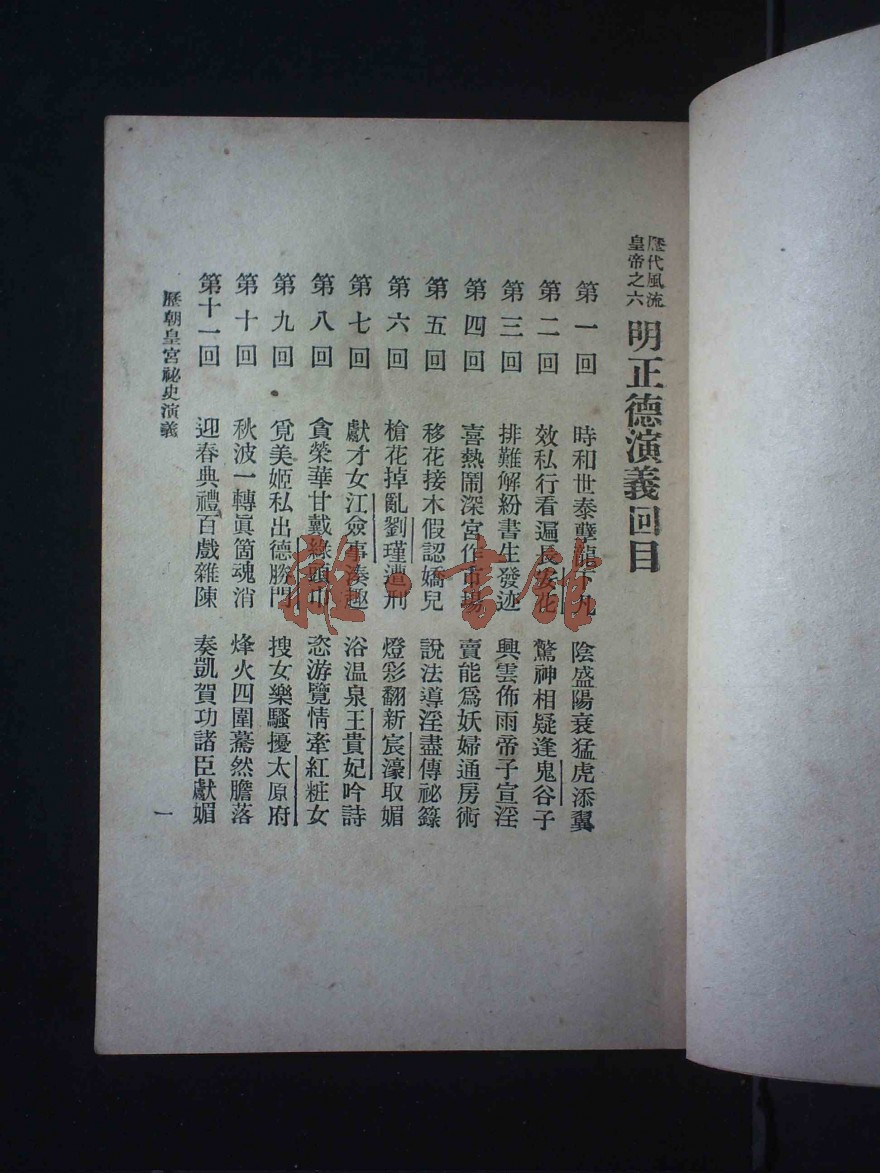 歷代風流
皇帝之六
明正德演義回目
第一回 時和世泰孽龍下凡 陰盛陽衰猛虎添翼
第二回 效私行看遍長安花 驚神相疑逢鬼谷子
第三回 排難解紛書生發迹 興雲佈雨帝子宣淫
第四回 喜熱鬧深宮作市場 賣能爲妖婦通房術
第五回 移花接木假認嬌兒 說法導淫盡傳祕籙
第六回 槍花掉亂劉瑾遭刑 燈彩翻新宸濠取媚
第七回 獻才女江僉事湊趣 浴温泉王貴妃吟詩
第八回 貪榮華甘戴綠頭巾 恣游覽情牽紅粧女
第九回 覓美姬私出德勝門 搜女樂騷擾太原府
第十回 秋波一轉眞箇魂消 烽火四圍驀然膽落
第十一回 迎春典禮百戲雜陳 奏凱賀功諸臣獻媚
歷朝皇宮祕史演義
一
雜·書館